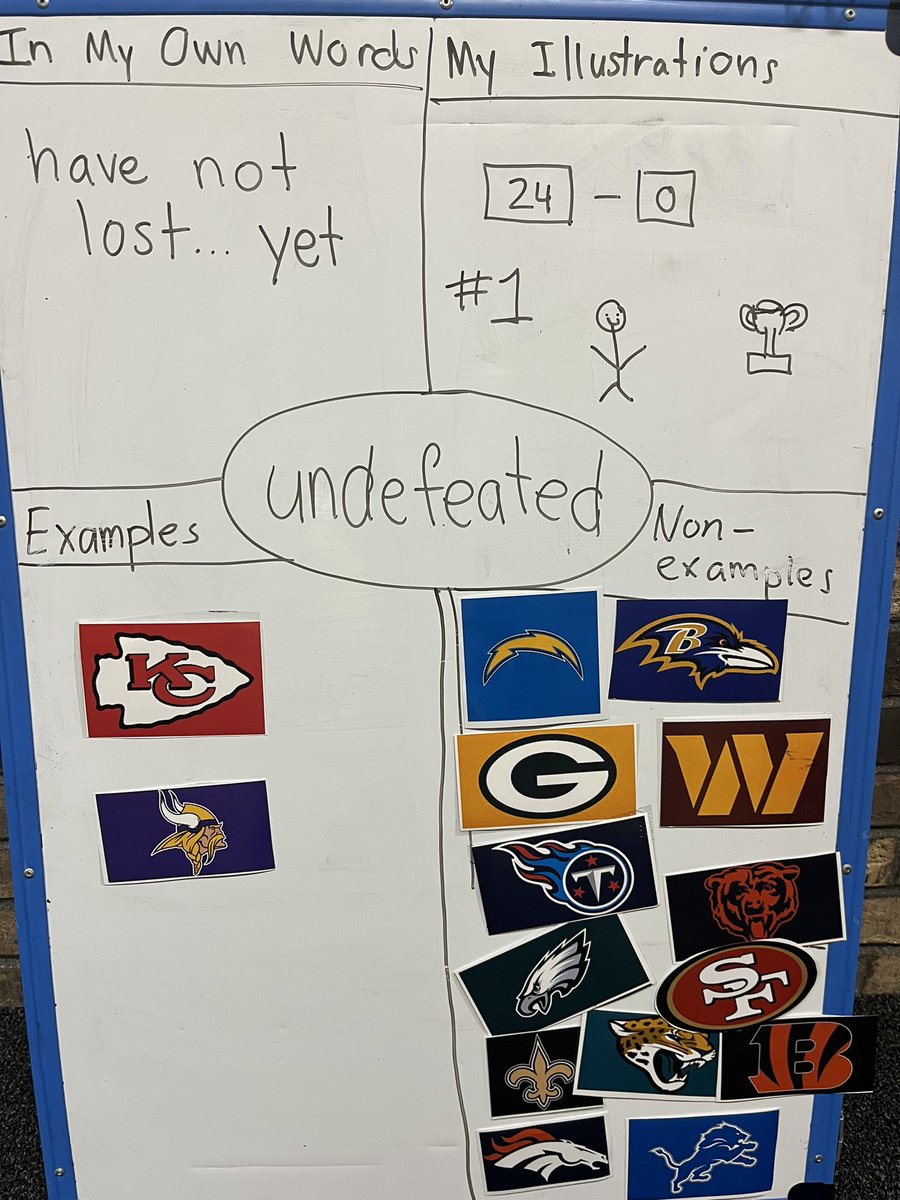 In My Own Words
My Illustrations
have not
lost... yet
24 – 0
#1
undefeated
Examples
Non-
examples
KC
B
G
W
T
SF
B